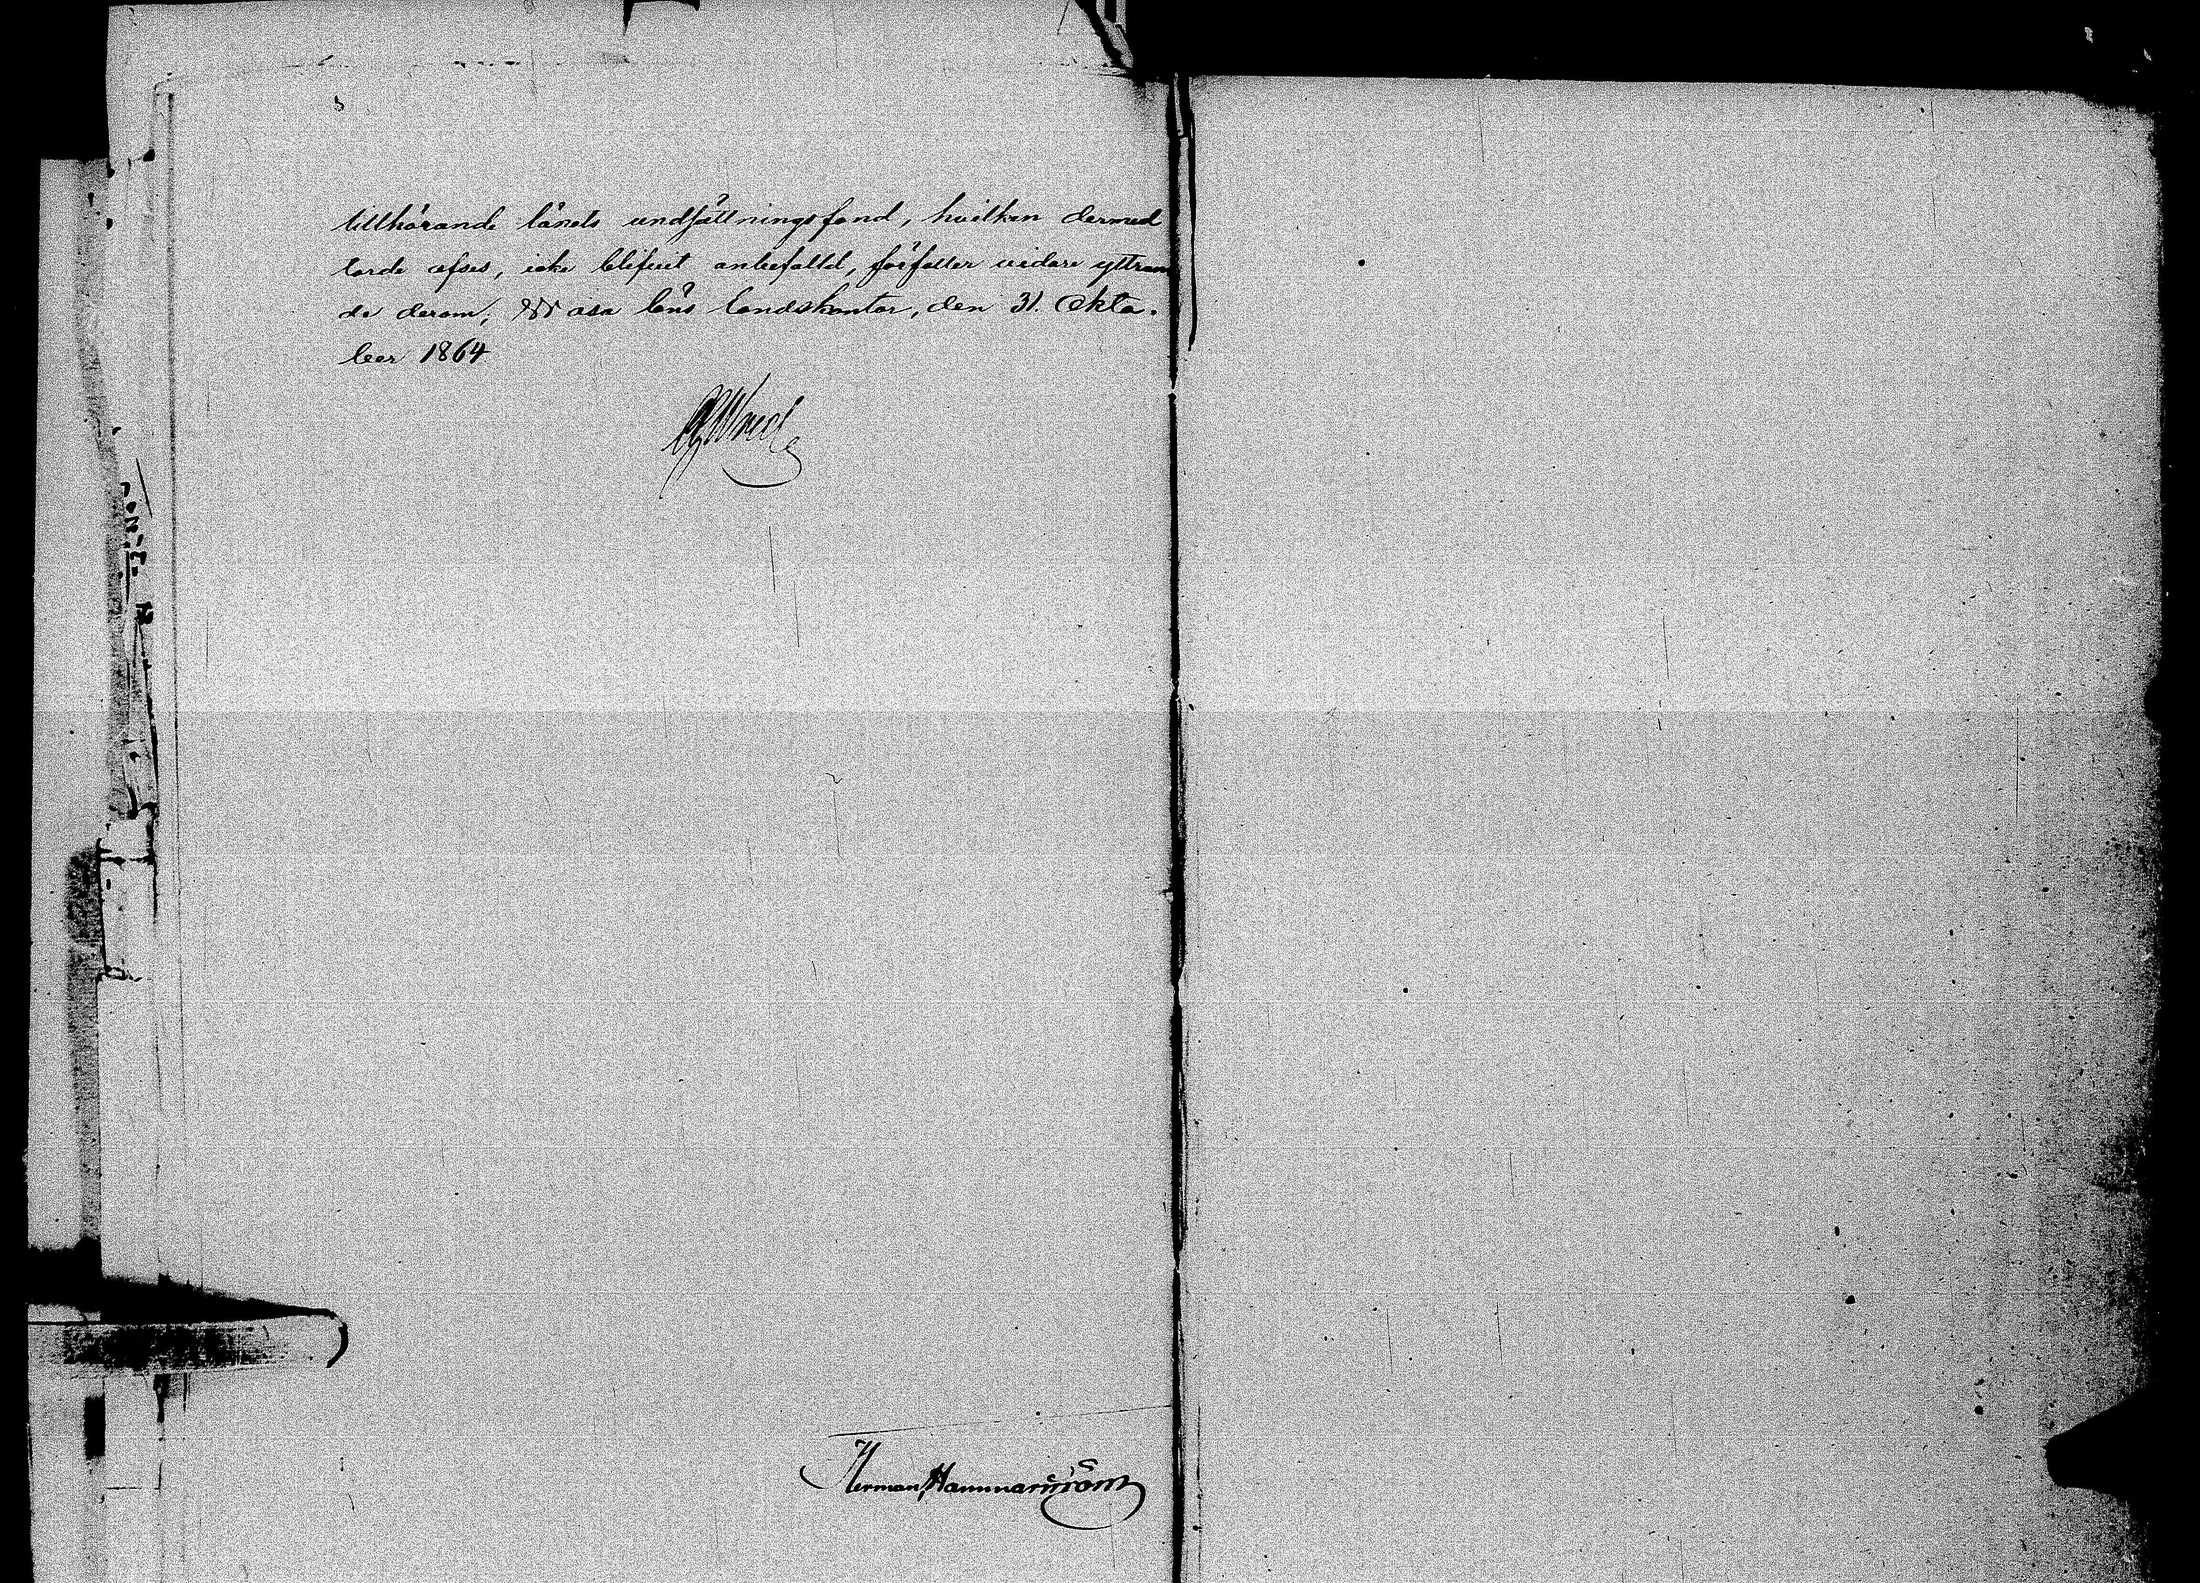 tillhörande länets undsättningsfond, hvilken dermed
torde afses, icke blifvit anbefalld, förfaller vidare yttran
de derom; Wasa läns landskontor, den 31. Okto-
ber 1864
Herman Hammarström